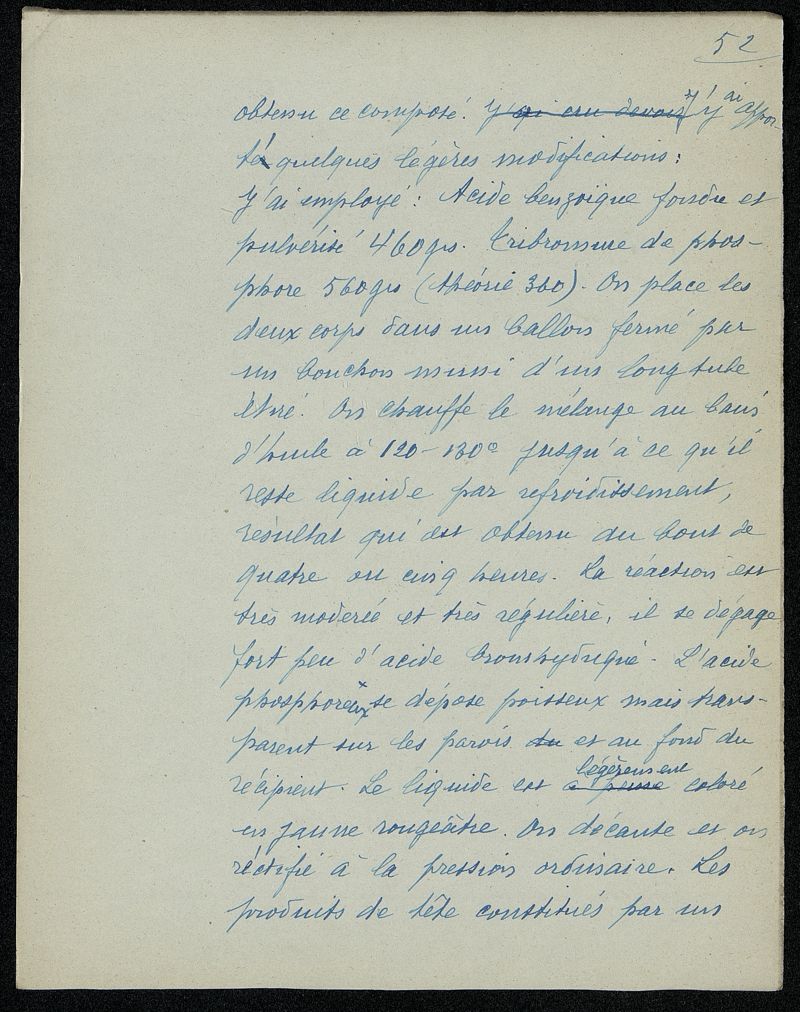 52
obtenu ce composé. J'ai cru devoir J'y ai appor-
té quelques légères modifications :
J'ai employé : Acide benzoïque fondu et
pulvérisé 460grs. Tribromure de phos-
phore 560grs (théorie 360). On place les
deux corps dans un ballon fermé par
un bouchon muni d'un long tube
étiré. On chauffe le mélange au bain
d'huile à 120-130° jusqu'à ce qu'il
reste liquide par refroidissement,
résultat qui est obtenu au bout de
quatre ou cinq heures. La réaction est
très modérée et très régulière, il se dégage
fort peu d'acide bromhydrique. L'acide
phosphoreux se dépose poisseux mais trans-
parent sur les parois du et au fond du
récipient. Le liquide est à peine légèrement coloré
en jaune rougeâtre. On décante et on
rectifie à la pression ordinaire. Les
produits de tête constitués par un